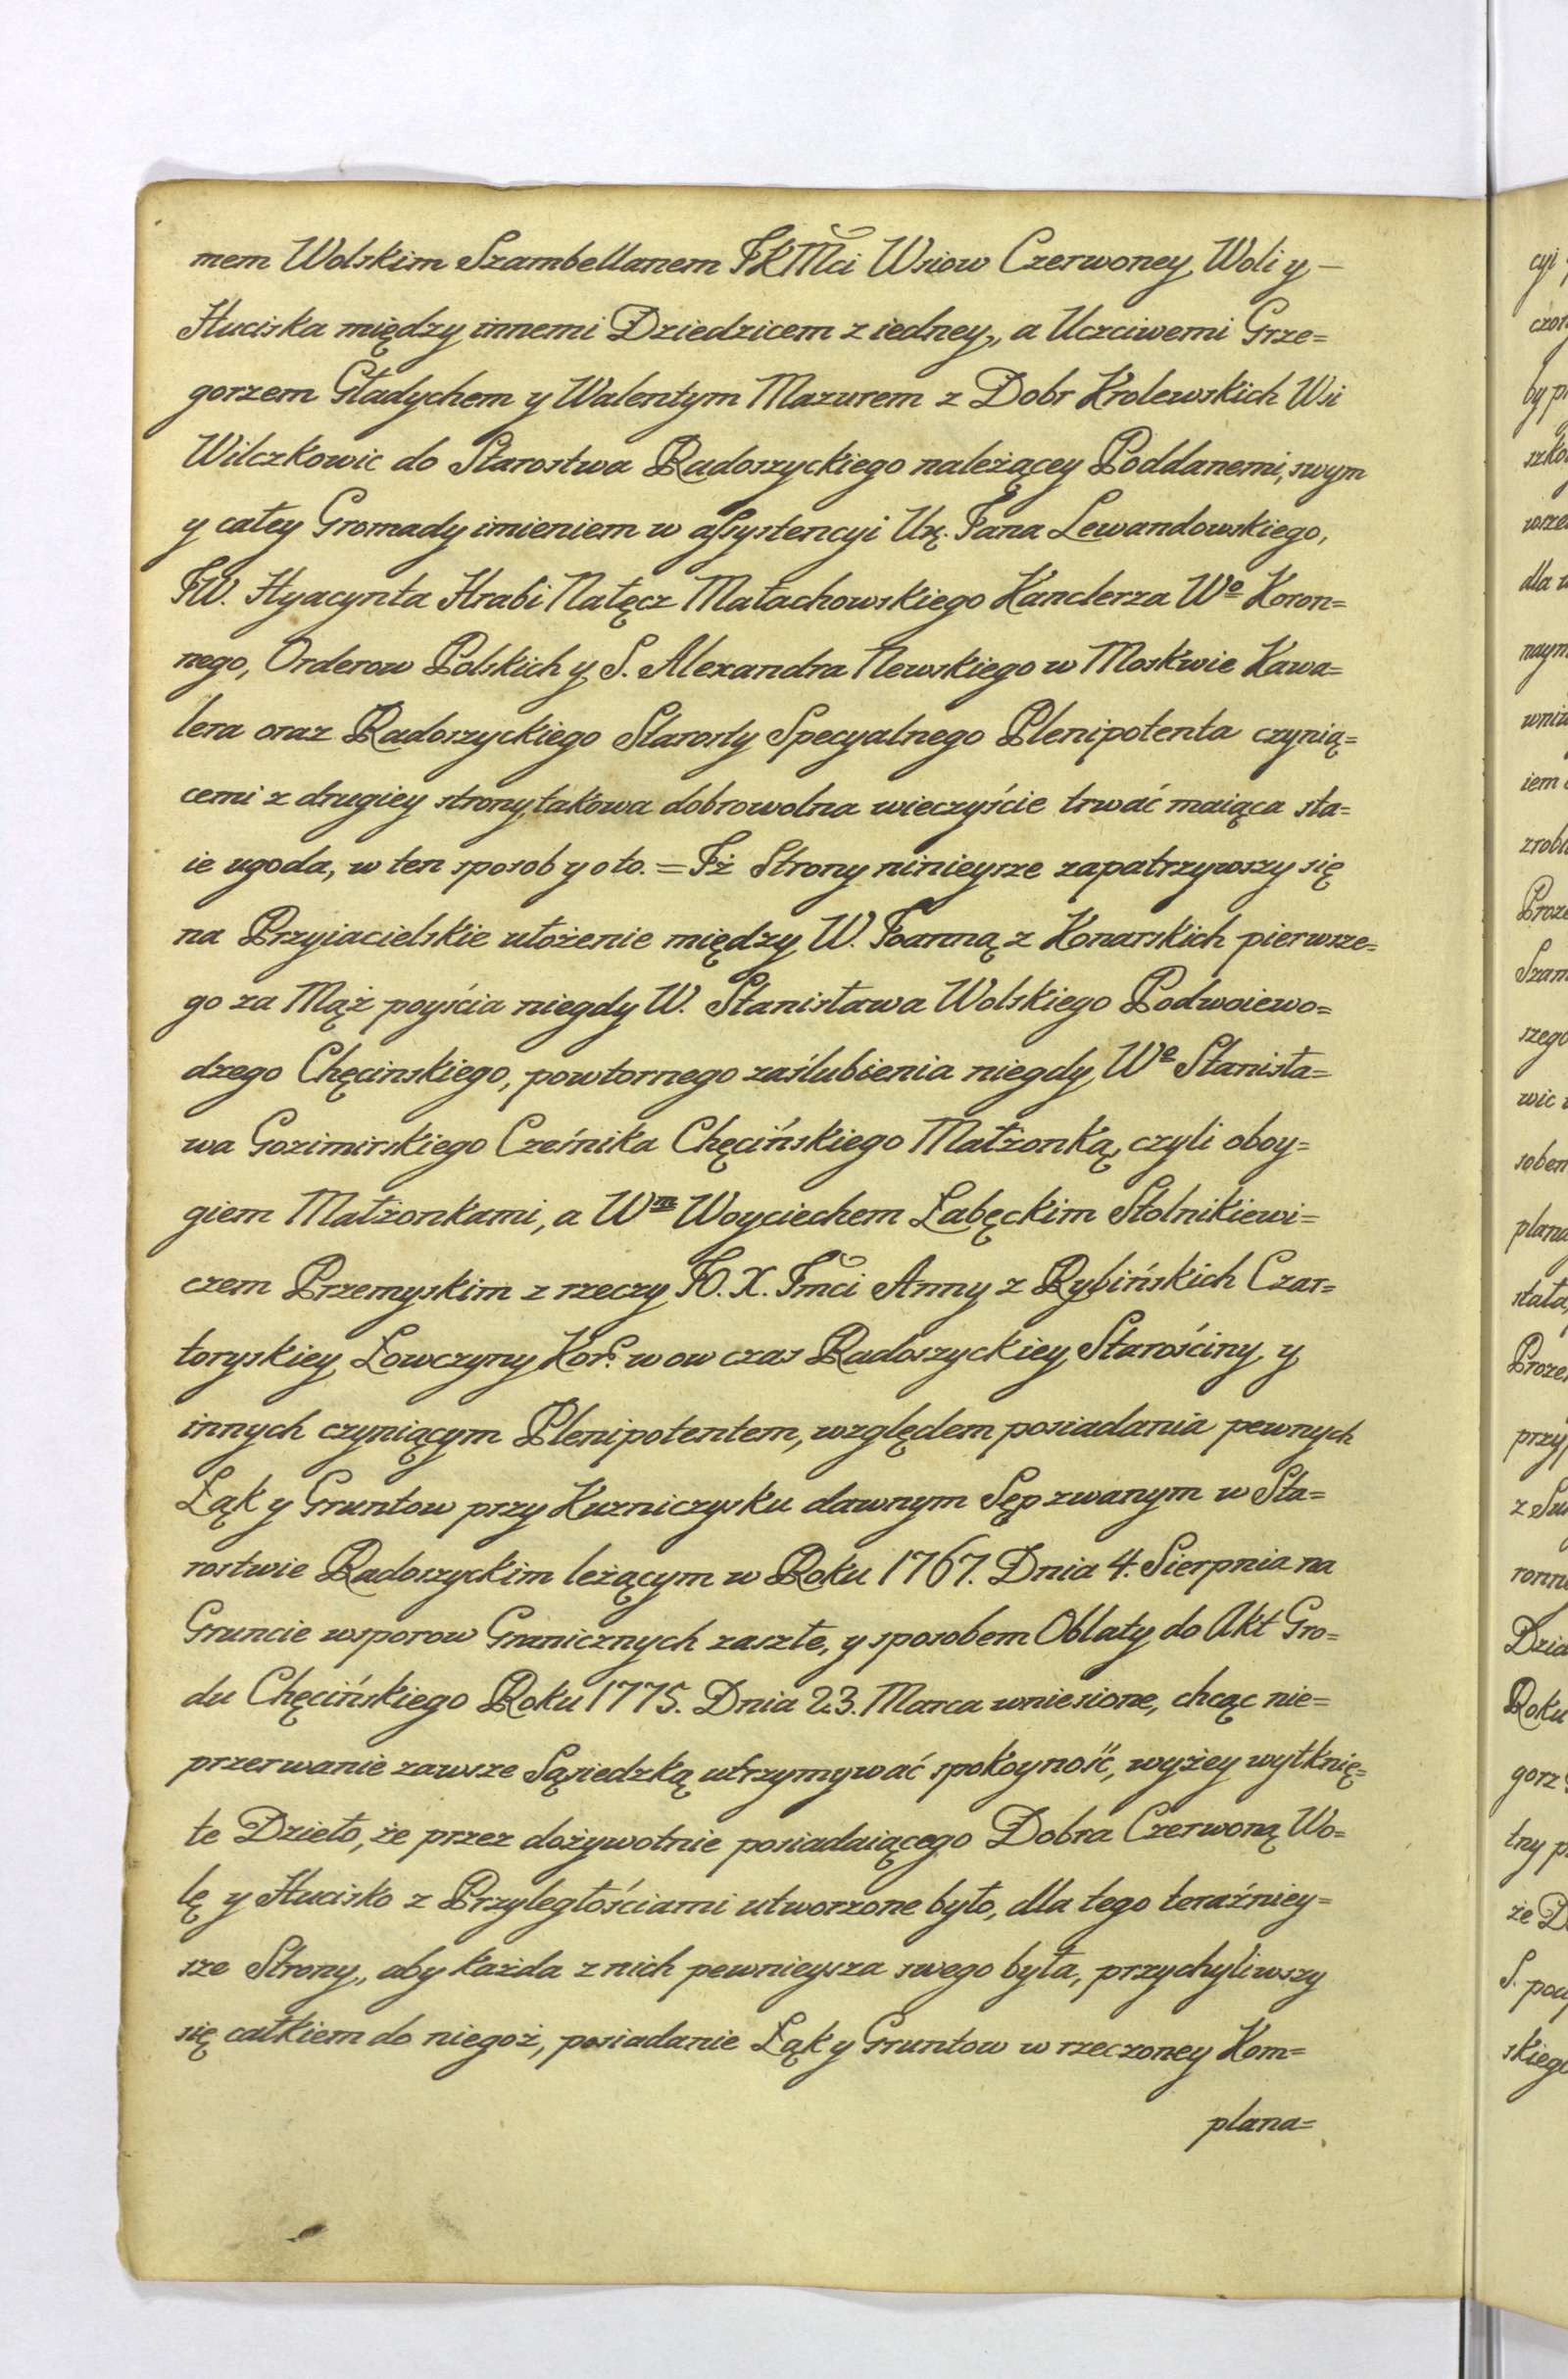 mem Wolskim Szambellanem JKMci Wsiow Czerwoney Woli y –
Huciska między innemi Dziedzicem z iedney, a Uczciwemi Grze=
gorzem Gładychem y Walentym Mazurem z Dobr Krolewskich Wsi
Wilczkowic do Starostwa Radoszyckiego należącey Poddanemi, swym
y całey Gromady imieniem w assystencyi Ur. Jana Lewandowskiego,
JW. Hyacynta Hrabi Nałęcz Małachowskiego Kanclerza Wo Koron=
nego, Orderow Polskich y S. Alexandra Newskiego w Moskwie Kawa=
lera oraz Radoszyckiego Starosty Specyalnego Plenipotenta czynią=
cemi z drugiey strony, takowa dobrowolna wieczyście trwać maiąca sta=
ie ugoda, w ten sposob y oto. = Iż Strony ninieysze zapatrzywszy się
na Przyiacielskie ułożenie między W. Joanną z Konarskich pierwsze=
go za Mąż poyścia niegdy W. Stanisława Wolskiego Podwoiewo=
dzego Chęcinskiego, powtornego zaślubienia niegdy Wo Stanisła=
wa Gozimirskiego Cześnika Chęcińskiego Małżonką, czyli oboy=
giem Małżonkami, a Wm Woyciechem Łabęckim Stolnikiewi=
czem Przemyskim z rzeczy J.O.X. Jmci Anny z Rybińskich Czar=
toryskiey Łowczyny Kor. w ow czas Radoszyckiey Starościny y
innych czyniącym Plenipotentem, względem posiadania pewnych
Łąk y Gruntow przy Kuzniczysku dawnym Sęp zwanym w Sta=
rostwie Radoszyckim leżącym w Roku 1767. Dnia 4. Sierpnia na
Gruncie wsporow Granicznych zaszłe, y sposobem Oblaty do Akt Gro=
du Chęcińskiego Roku 1775. Dnia 23. Marca wniesione, chcąc nie=
przerwanie zawsze Sąsiedzką utrzymywać spokoyność, wyżey wytknię=
te Dzieło, że przez dożywotnie posiadaiącego Dobra Czerwoną Wo=
lę y Hucisko z Przyległościami utworzone było, dla tego teraźniey=
sze Strony, aby każda z nich pewnieysza swego była, przychyliwszy
się całkiem do niegoż, posiadanie Łąk y Gruntow w rzeczoney Kom=
plana=